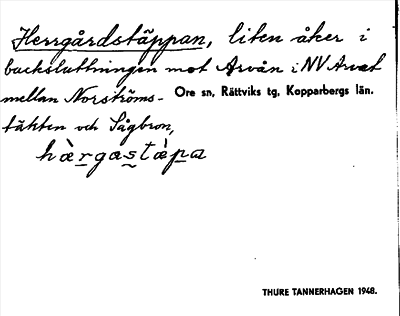 Herrgårdstäppan, liten åker i
backsluttningen mot Arvån i NV Arvet
mellan Norströms-
Ore sn, Rättviks tg, Kopparbergs län.
täkten och Sågbron,
hàrgastàpa
THURE TANNERHAGEN 1948.